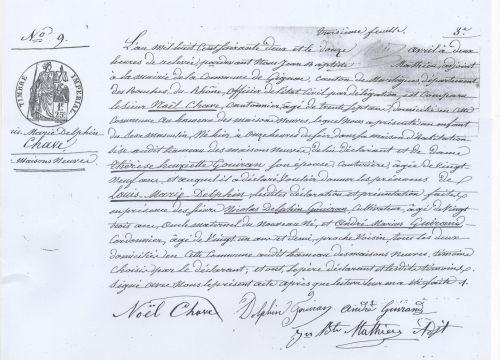 troisième feuille
3e
No 9.
TIMBRE IMPERIAL
Louis Marie Delphin
Chave
Maisons Neuves
L'an mil huit cent soixante deux et le douze avril à deux
heures de relevée pardevant Nous Jean Baptiste Mathieu, adjoint
à la mairie de la Commune de Gignac, canton de Martigues, département
des Bouches du Rhône, Officier de l'état Civil par délégation, est Comparu
le sieur Noël Chave, Cantonnier, âgé de trente sept ans, domicilié en cette
Commune au hameau des maisons neuves, lequel Nous a présenté un enfant
du Sexe masculin, Né hier à onze heures du soir dans la maison d'habitation
sise audit hameau des maisons neuves de lui déclarant et de Dame
Thérèse henriette Gouiran son épouse Couturière, âgée de vingt
Neuf ans, et auquel il a déclaré Vouloir donner les prénoms de
Louis Marie Delphin, lesdites déclaration et présentation faites
en présence des sieurs Nicolas Delphin Gouiran, Cultivateur, âgé de vingt
trois ans, oncle maternel du nouveau Né, et André Marius Guirand
Cordonnier, âgé de Vingt un ans et demi, proche Voisin, tous les deux
domiciliés en Cette Commune audit hameau des maisons neuves, témoins
Choisis par le déclarant, et ont le père déclarant et les dits témoins
Signé avec Nous le présent acte après que lecture leur en a été faite
Noël Chave Delphin Gouiran André Guirand
Jn Bte Mathieu Adjt